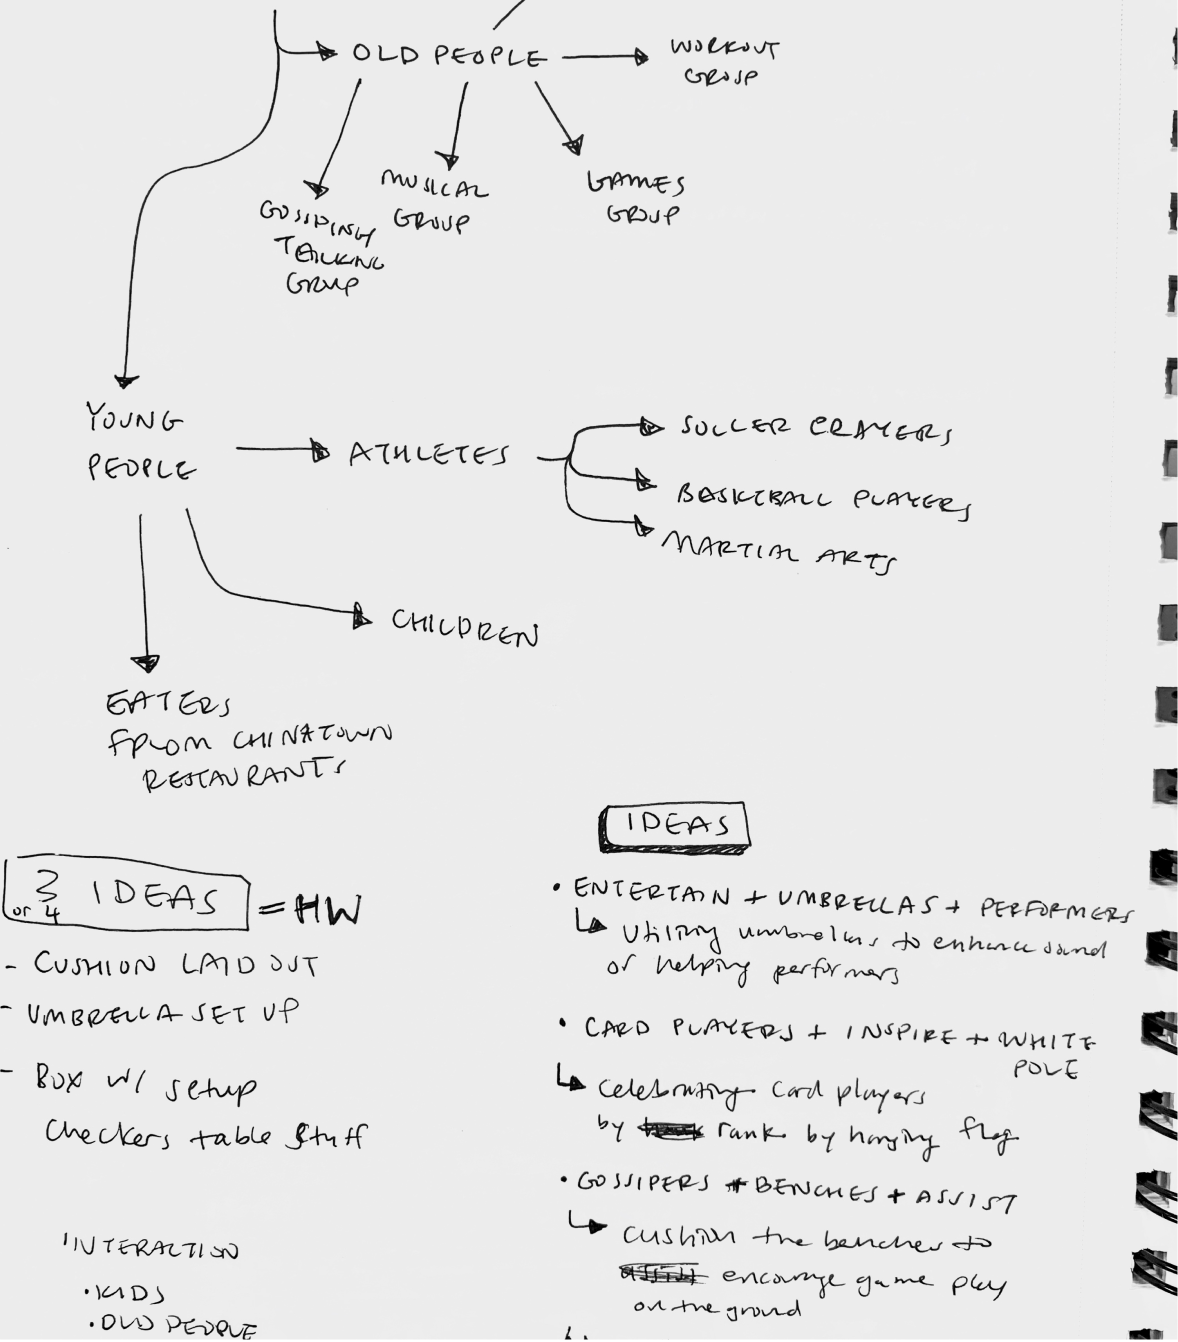 OLD PEOPLE
WORKOUT
GROUP
GOSSIPING
TALKING
GROUP
MUSICAL
GROUP
GAMES
GROUP
YOUNG
PEOPLE
ATHLETES
SOCCER PLAYERS
BASKETBALL PLAYERS
MARTIAL ARTS
CHILDREN
EATERS
FROM CHINATOWN
RESTAURANTS
3 or 4 IDEAS = HW
- CUSHION LAID OUT
- UMBRELLA SET UP
- BOX W/ setup
checkers table stuff
INTERACTION
• KIDS
• OLD PEOPLE
IDEAS
• ENTERTAIN + UMBRELLAS + PERFORMERS
utilizing umbrellas to enhance sound
or helping performers
• CARD PLAYERS + INSPIRE + WHITE
POLE
celebrating card players
by rank by hanging flag
• GOSSIPERS + BENCHES + ASSIST
cushion the benches to
encourage game play
on the ground